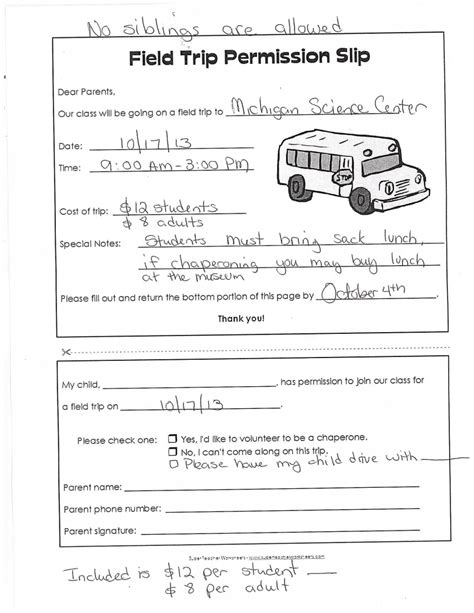 No siblings are allowed
Field Trip Permission Slip
Dear Parents,
Our class will be going on a field trip to Michigan Science Center
Date: 10/17/13
Time: 9:00 Am - 3:00 Pm
STOP
Cost of trip: $12 students
$8 adults
Special Notes: Students must bring sack lunch,
if chaperoning you may buy lunch
at the museum
Please fill out and return the bottom portion of this page by October 4th
Thank you!
My child, , has permission to join our class for
a field trip on 10/17/13
Please check one: Yes, I'd like to volunteer to be a chaperone.
No, I can't come along on this trip.
Please have my child drive with
Parent name:
Parent phone number:
Parent signature:
SuperTeacherWorksheets - www.superteacherworksheets.com
Included is $12 per student
$8 per adult